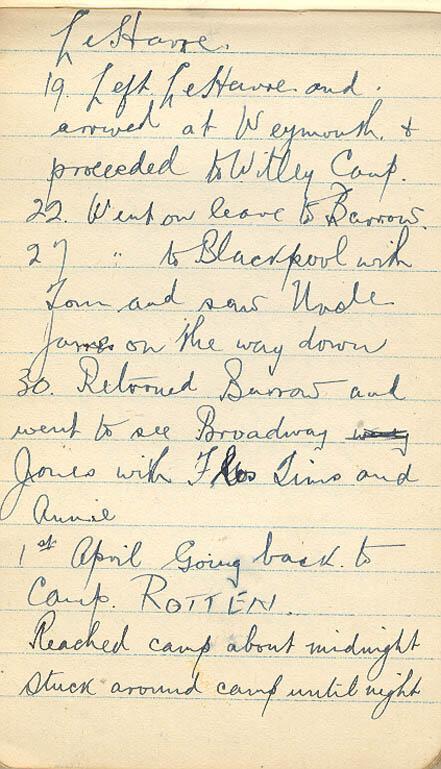 LeHavre.
19. Left LeHavre and.
arrived at Weymouth. &
proceeded to Witley Camp.
22. Went on leave to Barrow.
27 " to Blackpool with
Tom and saw Uncle
James on the way down
30. Returned Barrow and
went to see Broadway
Jones with Flos Tims and
Annie
1st April Going back to
Camp. ROTTEN.
Reached camp about midnight
Stuck around camp until night